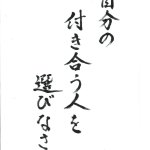 自分の
付き合う人を
選びなさ